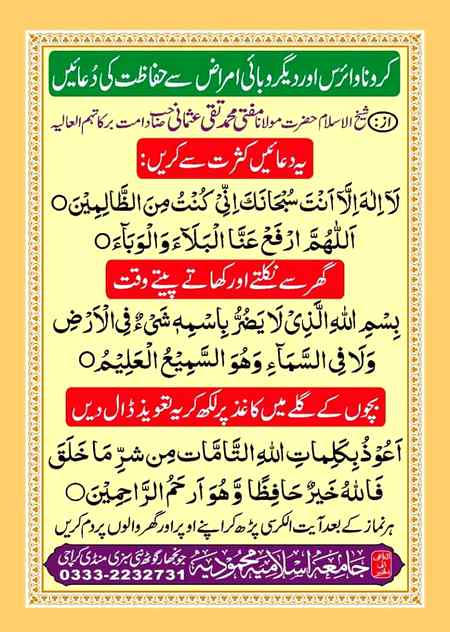 کرونا وائرس اور دیگر وبائی امراض سے حفاظت کی دُعائیں
از: شیخ الاسلام حضرت مولانا مفتی محمد تقی عثمانی صاحب دامت برکاتہم العالیہ
یہ دعائیں کثرت سے کریں:
لَآ اِلٰهَ اِلَّآ اَنْتَ سُبْحَانَكَ اِنِّیْ كُنْتُ مِنَ الظَّالِمِیْنَ○
اَللّٰهُمَّ ارْفَعْ عَنَّا الْبَلَآءَ وَالْوَبَآءَ○
گھر سے نکلتے اور کھاتے پیتے وقت
بِسْمِ اللّٰهِ الَّذِیْ لَا یَضُرُّ بِاسْمِهٖ شَیْءٌ فِی الْاَرْضِ
وَلَا فِی السَّمَآءِ وَهُوَ السَّمِیْعُ الْعَلِیْمُ○
بچوں کے گلے میں کاغذ پر لکھ کر یہ تعویذ ڈال دیں
اَعُوْذُ بِكَلِمَاتِ اللّٰهِ التَّامَّاتِ مِن شرِّ مَا خَلَقَ
فَاللّٰهُ خَیْرٌ حَافِظًا وَّهُوَ اَرْحَمُ الرَّاحِمِیْنَ○
ہر نماز کے بعد آیت الکرسی پڑھ کر اپنے اوپر اور گھر والوں پر دم کریں
جامعہ اسلامیہ محمودیہ جوکھار گوٹھ نئی سبزی منڈی کراچی
0333-2232731